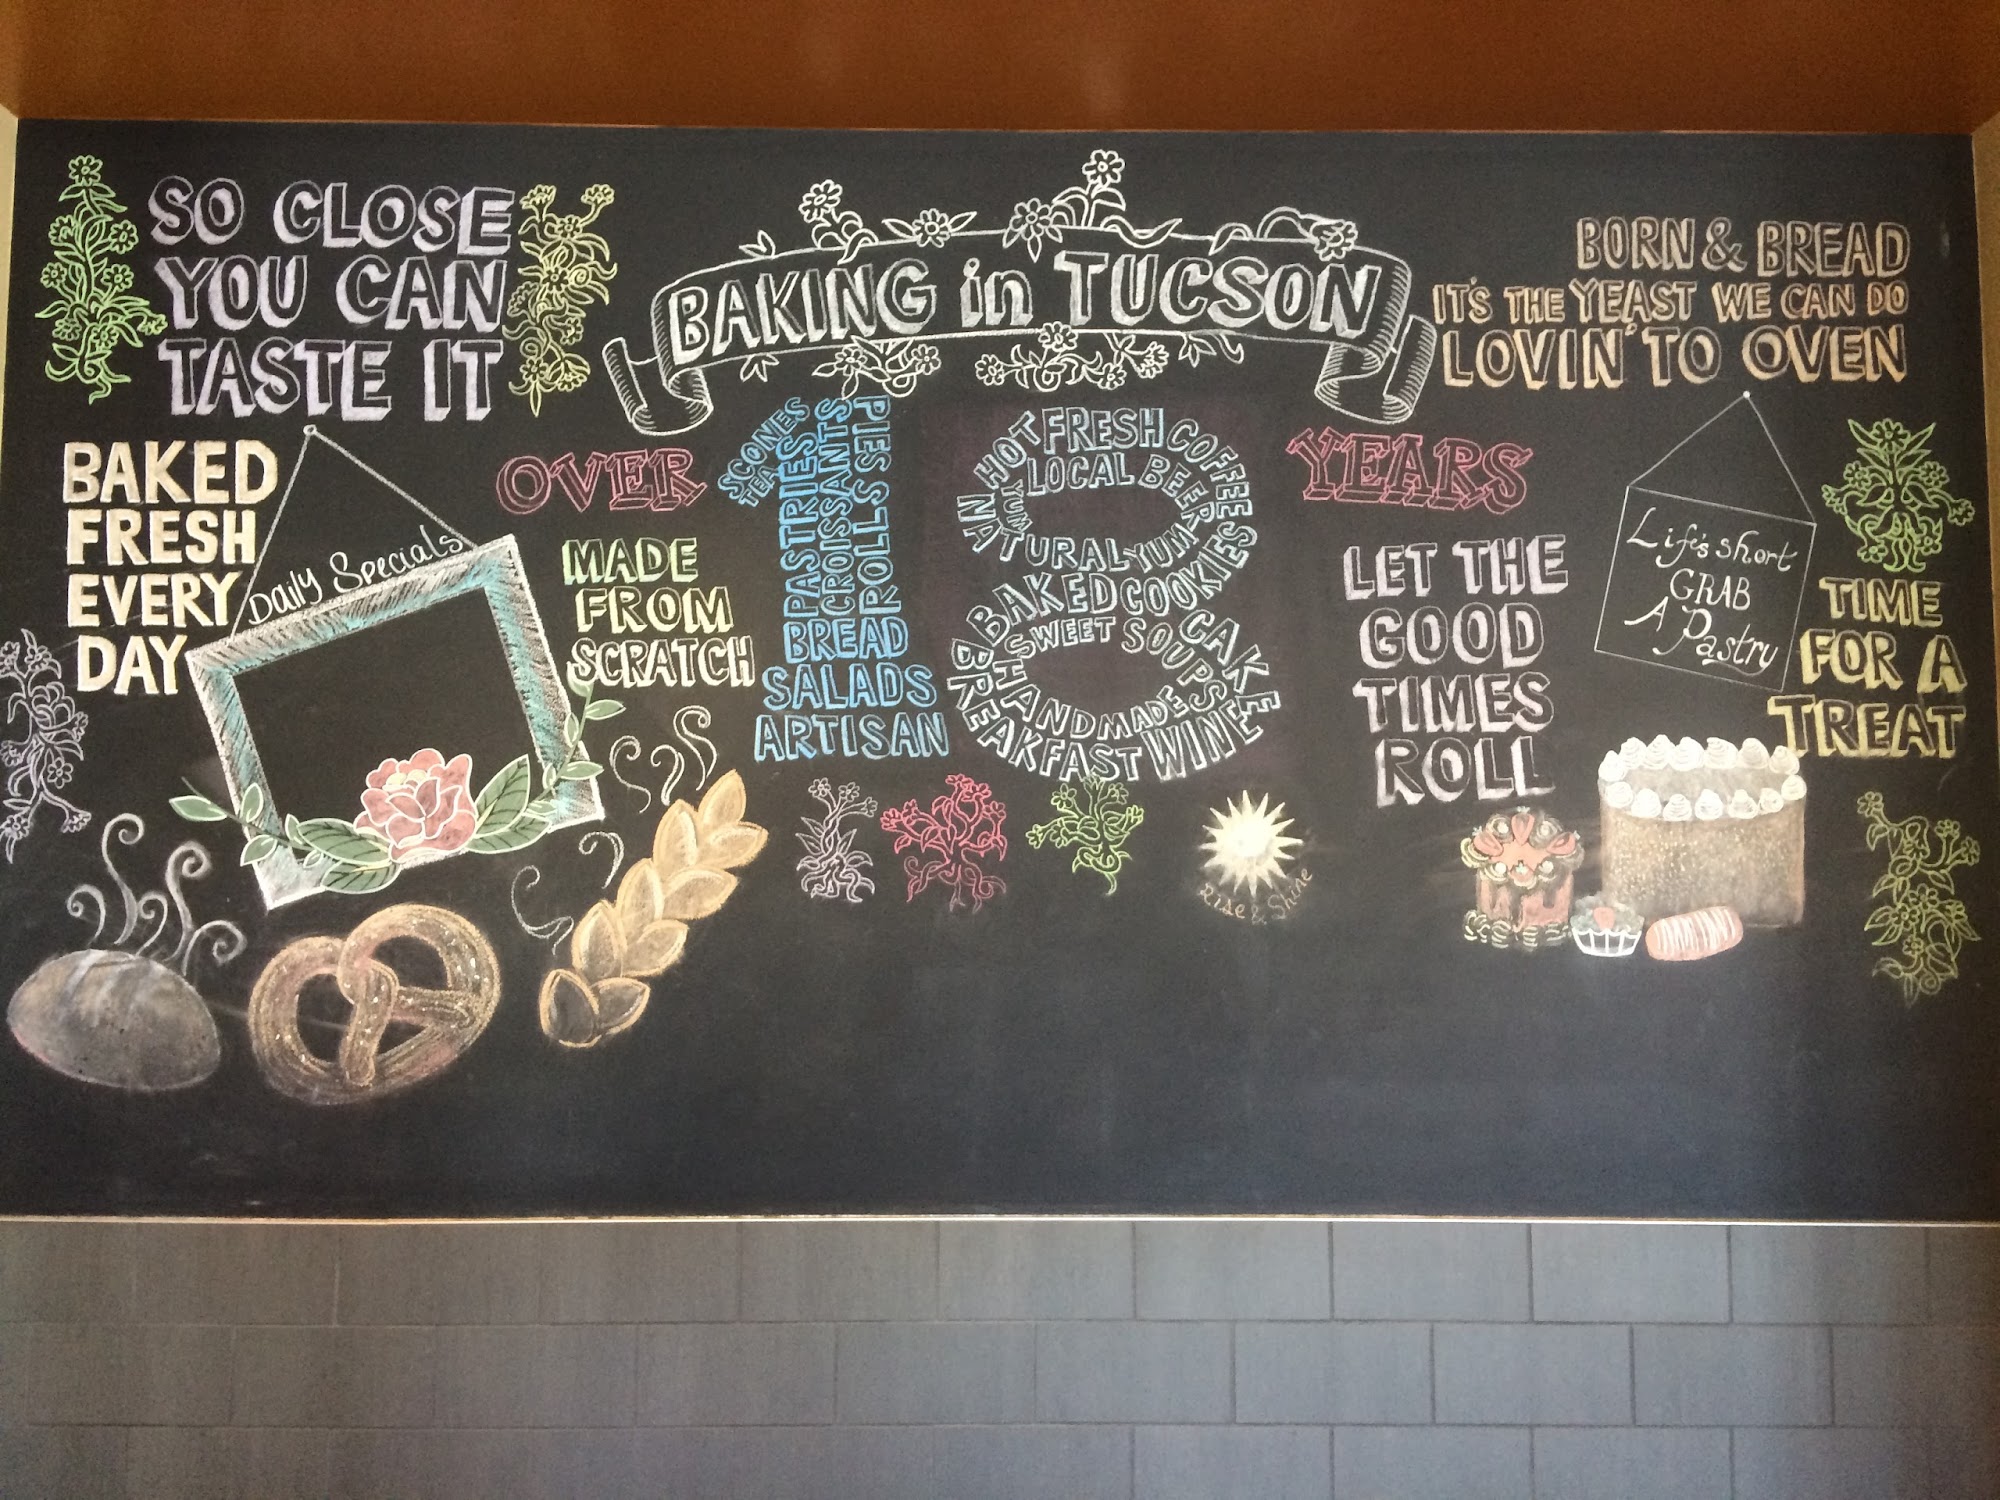 SO CLOSE
YOU CAN
TASTE IT
BAKING in TUCSON
BORN & BREAD
IT'S THE YEAST WE CAN DO
LOVIN' TO OVEN
BAKED
FRESH
EVERY
DAY
Daily Specials
OVER
MADE
FROM
SCRATCH
SCONES
TEA
PASTRIES
CROISSANTS
ROLLS PIES
BREAD
SALADS
ARTISAN
HOT FRESH COFFEE
LOCAL BEER
YUM
AN
NATURAL YUM
BAKED COOKIES
SWEET SOUPS
CAKE
HANDMADE
BREAKFAST WINE
YEARS
LET THE
GOOD
TIMES
ROLL
Life's short
GRAB
A Pastry
TIME
FOR A
TREAT
Rise & Shine